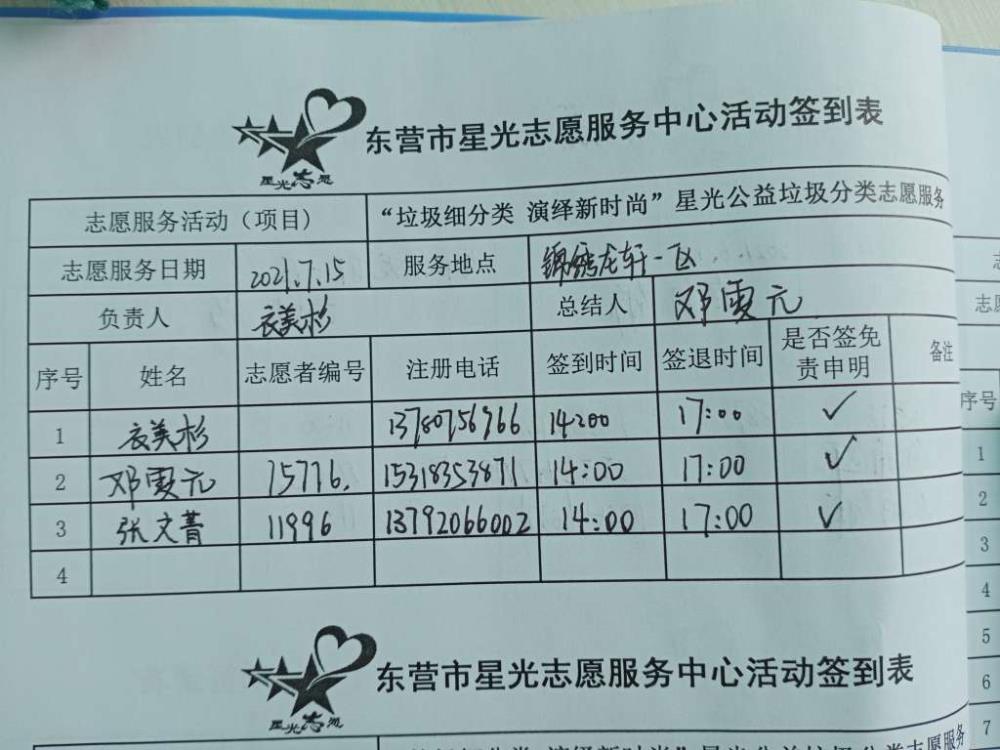 东营市星光志愿服务中心活动签到表
星光志愿
志愿服务活动（项目） “垃圾细分类 演绎新时尚”星光公益垃圾分类志愿服务
志愿服务日期 2021.7.15 服务地点 锦绣龙轩一区
负责人 袁美杉 总结人 邓雯元
序号 姓名 志愿者编号 注册电话 签到时间 签退时间 是否签免责申明 备注
1 袁美杉 14:00 17:00 ✓
2 邓雯元 15776. 15318353871 14:00 17:00 ✓
3 张文菁 11996 13792066002 14:00 17:00 ✓
4
东营市星光志愿服务中心活动签到表
星光志愿
序号
1
2
3
4
5
6
7